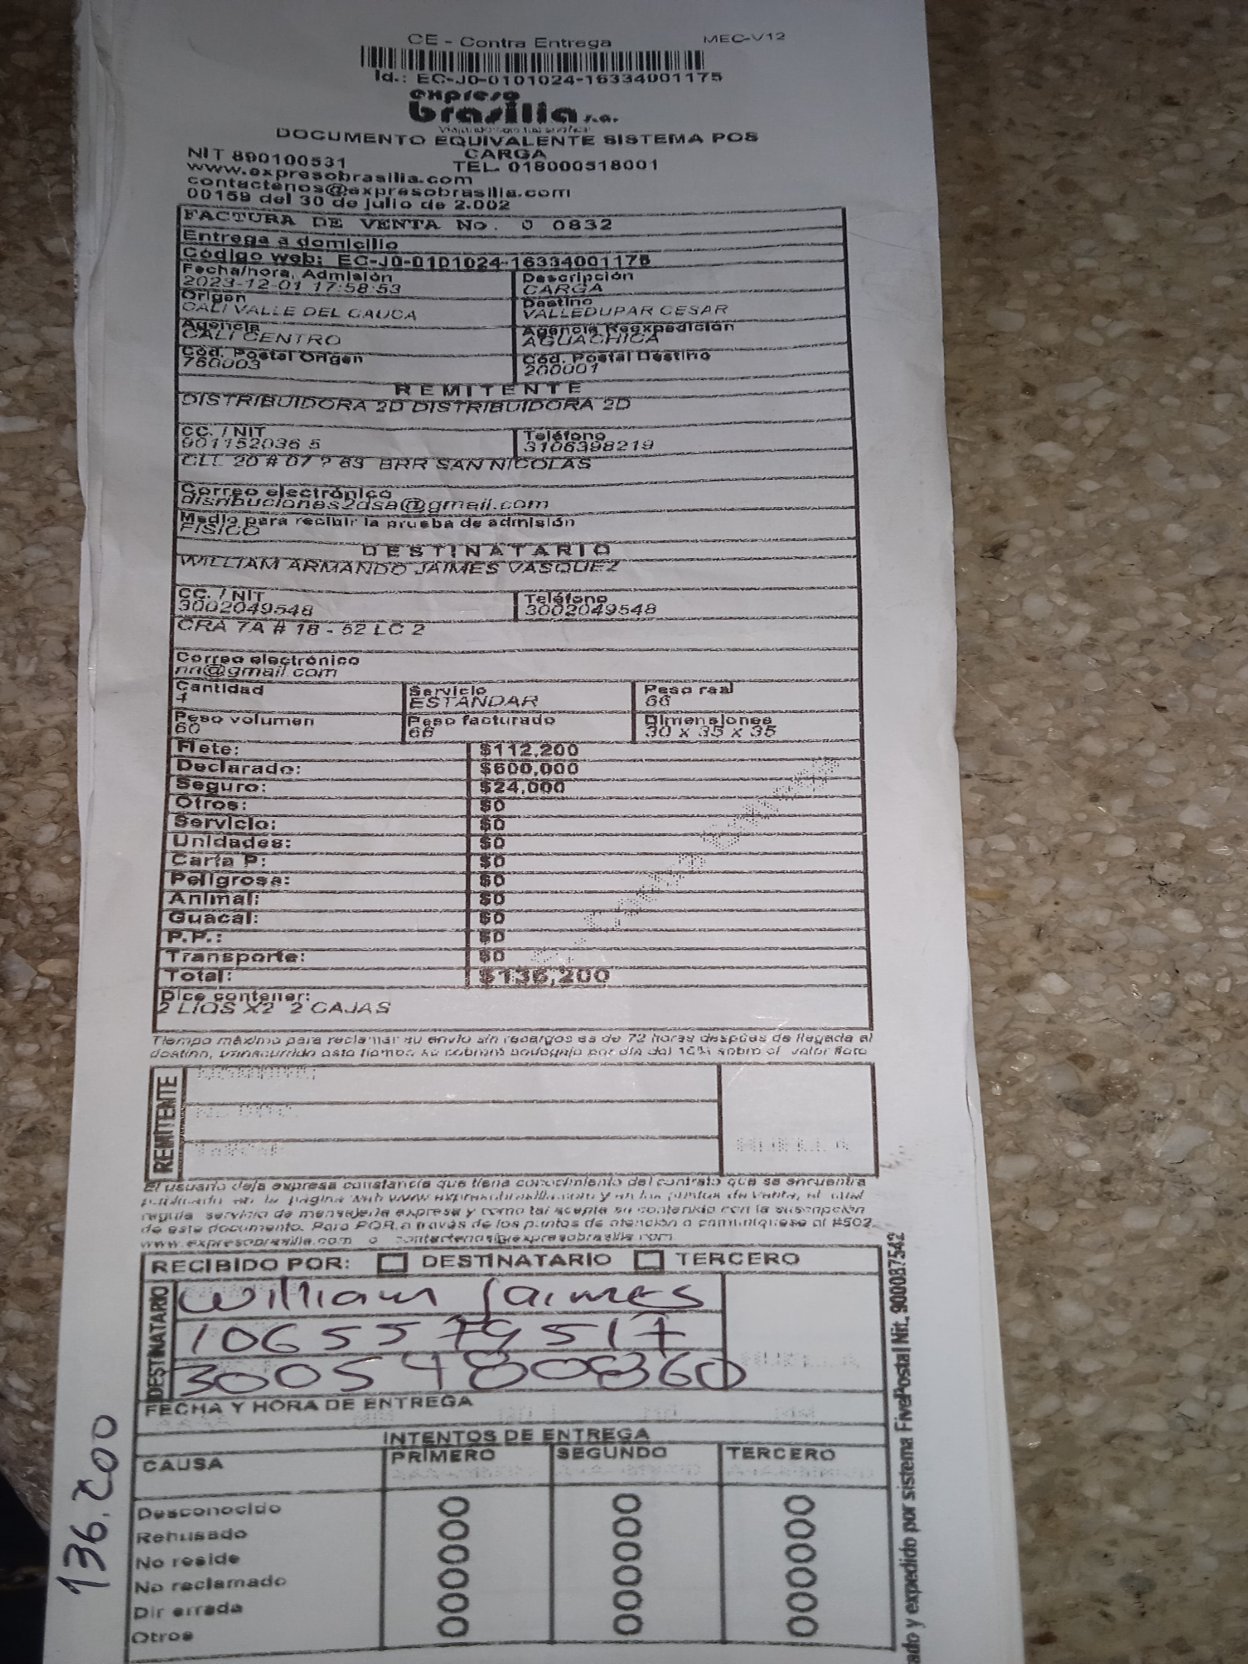 CE - Contra Entrega MEC-V12
Id.: EC-J0-0101024-16334001175
expreso
brasilia s.a.
DOCUMENTO EQUIVALENTE SISTEMA POS
CARGA
NIT 890100531 TEL. 018000518001
www.expresobrasilia.com
contactenos@expresobrasilia.com
00159 del 30 de julio de 2.002
FACTURA DE VENTA No. 0 0832
Entrega a domicilio
Código web: EC-J0-0101024-16334001175
Fecha/hora, Admisión Descripción
2023-12-01 17:58:53 CARGA
Origen Destino
CALI VALLE DEL CAUCA VALLEDUPAR CESAR
Agencia Agencia Reexpedición
CALI CENTRO AGUACHICA
Cód. Postal Origen Cód. Postal Destino
760003 200001
REMITENTE
DISTRIBUIDORA 2D DISTRIBUIDORA 2D
CC. / NIT Teléfono
901152036 5 3106398219
CLL 20 # 07 ? 63 BRR SAN NICOLAS
Correo electrónico
disribuciones2dsa@gmail.com
Medio para recibir la prueba de admisión
FISICO
DESTINATARIO
WILLIAM ARMANDO JAIMES VASQUEZ
CC. / NIT Teléfono
3002049548 3002049548
CRA 7A # 18 - 52 LC 2
Correo electrónico
nn@gmail.com
Cantidad Servicio Peso real
4 ESTANDAR 66
Peso volumen Peso facturado Dimensiones
60 66 30 x 35 x 35
Flete: $112,200
Declarado: $600,000
Seguro: $24,000
Otros: $0
Servicio: $0
Unidades: $0
Carta P: $0
Peligrosa: $0
Animal: $0
Guacal: $0
P.P.: $0
Transporte: $0
Total: $136,200
Dice contener:
2 LIOS X2 2 CAJAS
Tiempo máximo para reclamar su envío sin recargos es de 72 horas después de llegada al
destino, transcurrido este tiempo se cobrará bodegaje por día del 10% sobre el valor flete
REMITENTE
HUELLA
El usuario deja expresa constancia que tiene conocimiento del contrato que se encuentra
publicado en la página web www.expresobrasilia.com y en los puntos de venta, el cual
regula servicio de mensajería expresa y como tal acepta su contenido con la suscripción
de este documento. Para PQR a través de los puntos de atención o comuníquese al #502.
www.expresobrasilia.com o contactenos@expresobrasilia.com
RECIBIDO POR: DESTINATARIO TERCERO
DESTINATARIO
William Jaimes
1065579517
3005480860
FECHA Y HORA DE ENTREGA
INTENTOS DE ENTREGA
CAUSA PRIMERO SEGUNDO TERCERO
Desconocido
Rehusado
No reside
No reclamado
Dir errada
Otros
136.200
ado y expedido por sistema FivePostal Nit. 900087542